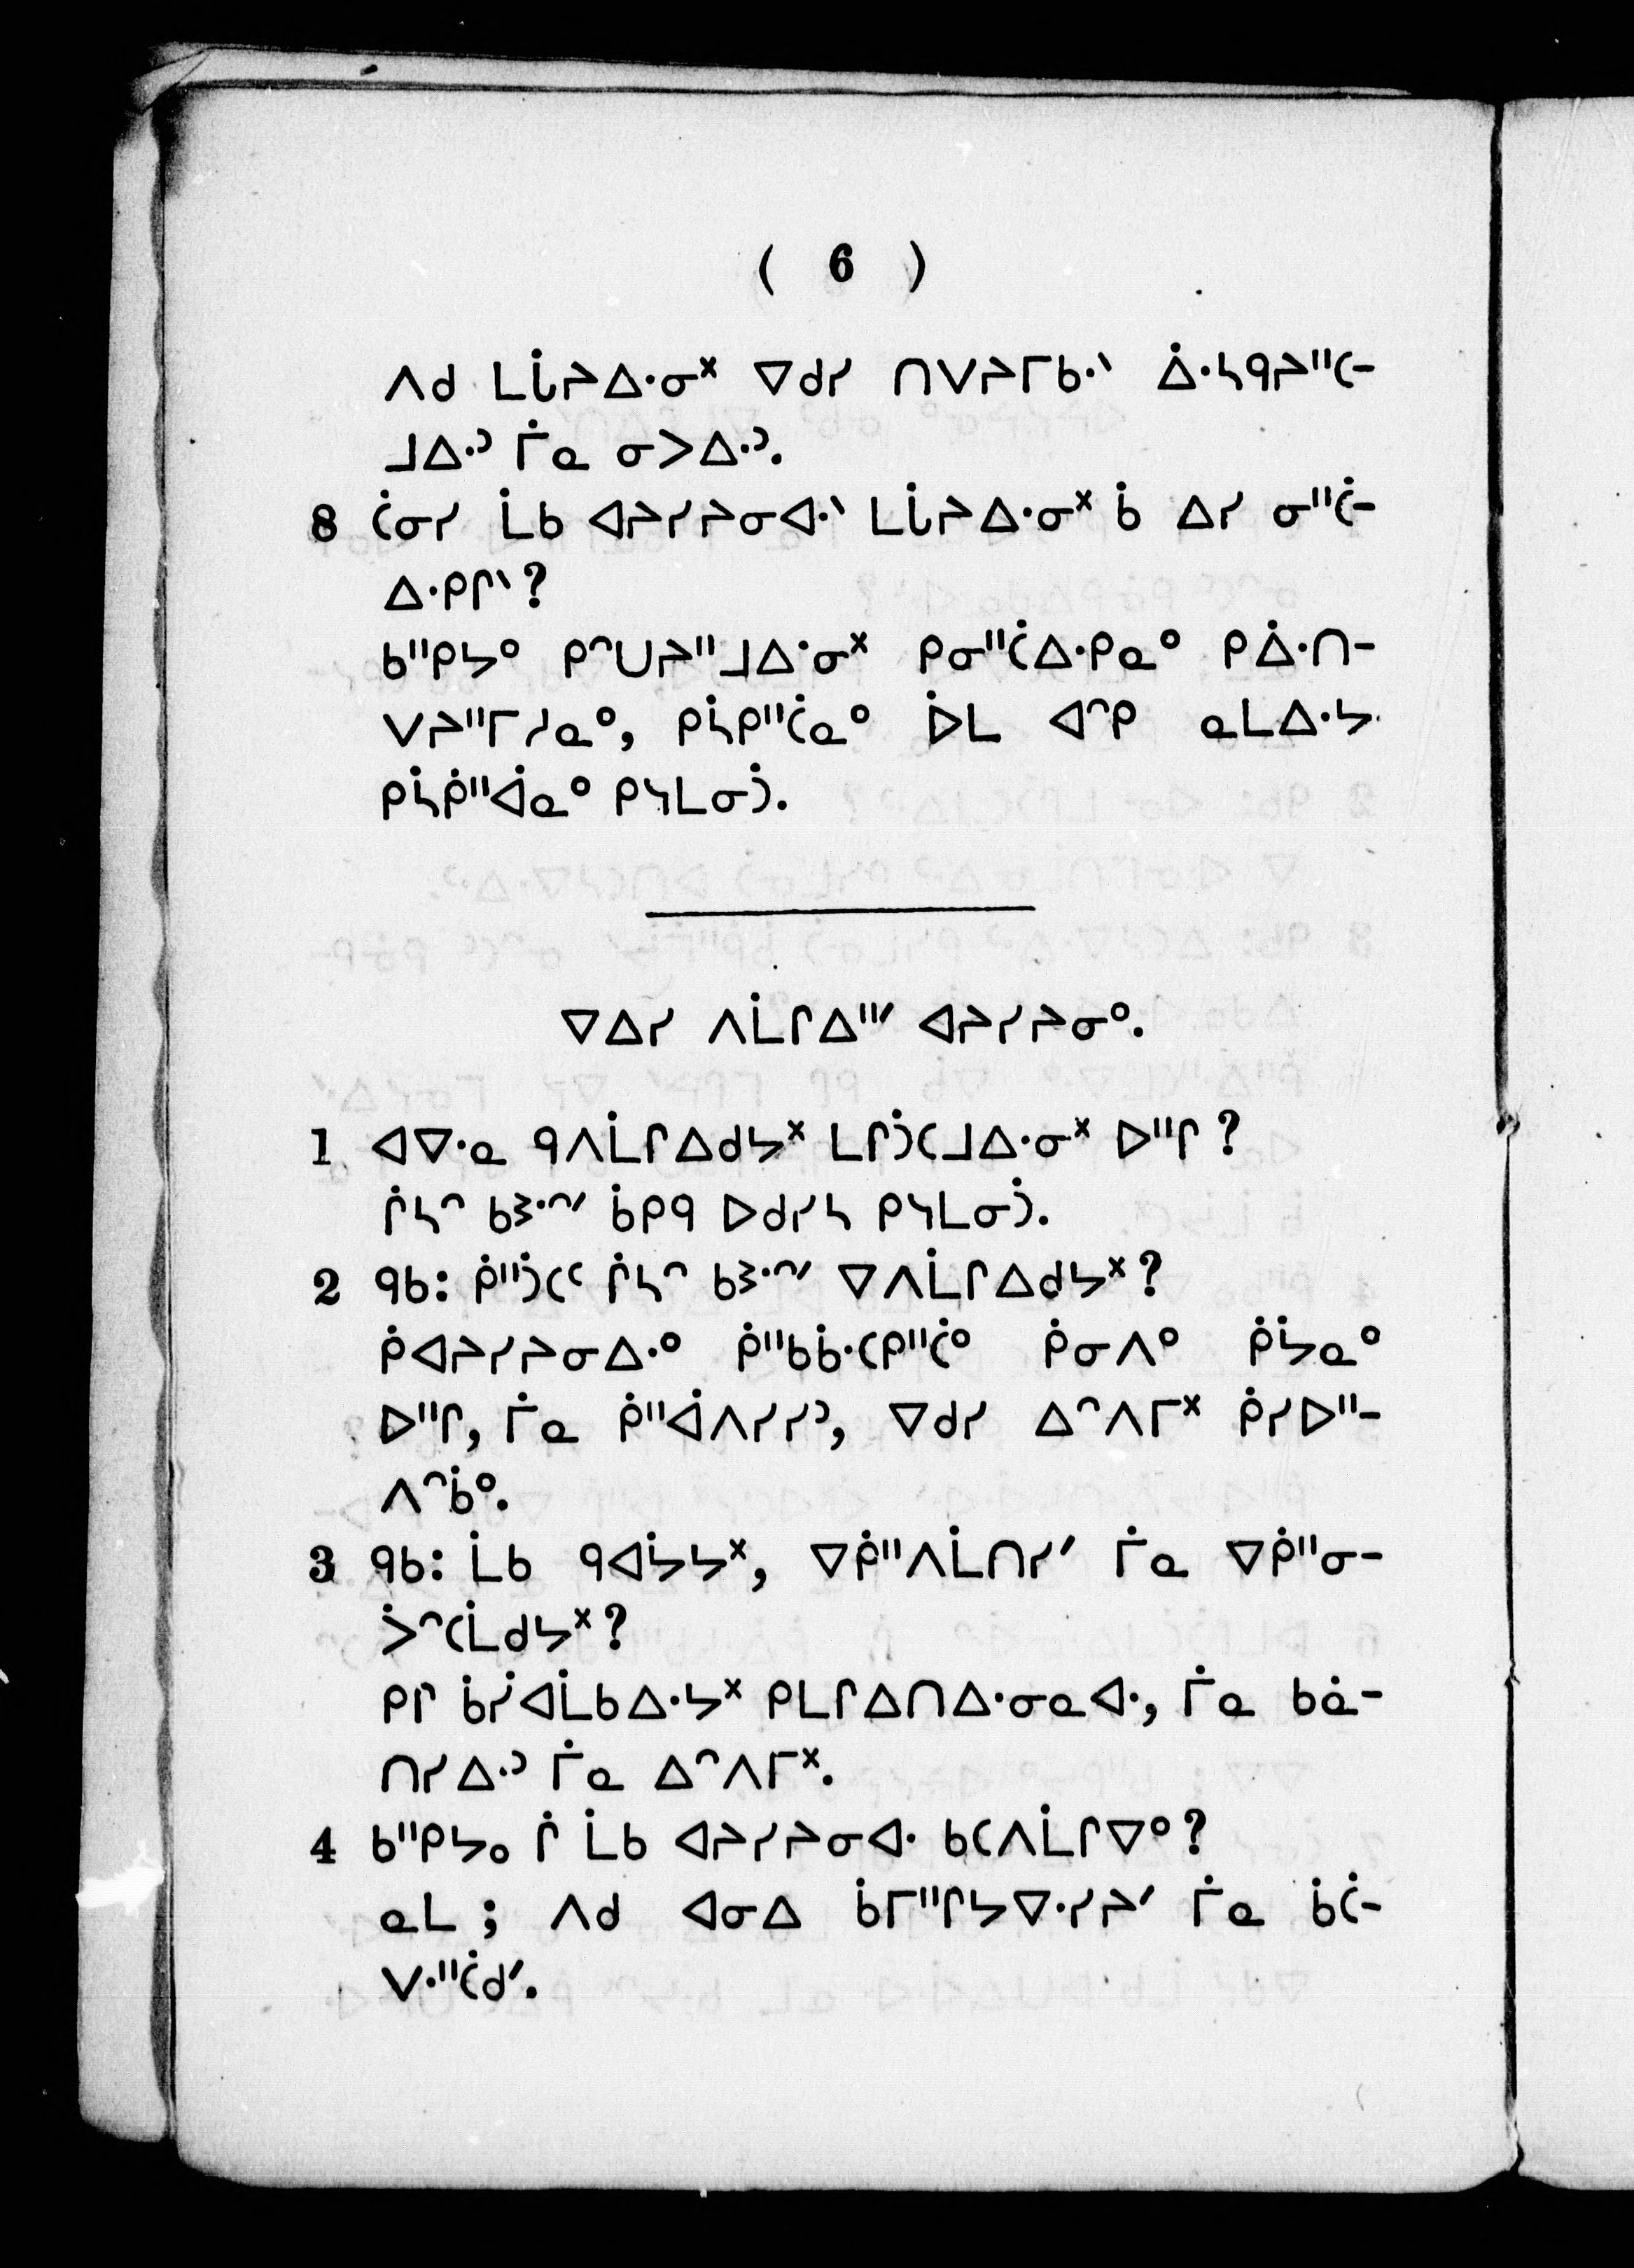 ( 6 )
ᐱᑯ ᒪᒑᔨᐃᐧᓂᕽ ᐁᑯᓯ ᑎᐯᔨᒥᑲᐧᐠ ᐄᐧᓴᑫᔨᐦᑕ-
ᒧᐃᐧᐣ ᒦᓇ ᓂᐳᐃᐧᐣ.
8 ᑖᓂᓯ ᒫᑲ ᐊᔨᓯᔨᓂᐊᐧᐠ ᒪᒑᔨᐃᐧᓂᕽ ᑳ ᐃᓯ ᓂᐦᑖ-
ᐃᐧᑭᒋᐠ ?
ᑲᐦᑭᔭᐤ ᑭᐢᑌᔨᐦᒧᐃᐧᓂᕽ ᑭᓂᐦᑖᐃᐧᑭᓇᐤ ᑭᐄᐧᑎ-
ᐯᔨᐦᒥᓱᓇᐤ, ᑭᓵᑭᐦᑖᓇᐤ ᐆᒪ ᐊᐢᑭ ᓇᒪᐃᐧᔭ
ᑭᓵᑮᐦᐋᓇᐤ ᑭᓴᒪᓂᑑ.
ᐁᐃᓯ ᐱᒫᒋᐃᐦᐟ ᐊᔨᓯᔨᓂᐤ.
1 ᐊᐁᐧᓇ ᑫᐱᒫᒋᐃᑯᔭᕽ ᒪᒋᑑᑕᒧᐃᐧᓂᕽ ᐅᐦᒋ ?
ᒌᓴᐢ ᑲᕒᐧᐢᐟ ᑳᑭᑫ ᐅᑯᓯᓴ ᑭᓴᒪᓂᑑ.
2 ᑫᑲ: ᑮᐦᑑᑕᑦ ᒌᓴᐢ ᑲᕒᐧᐢᐟ ᐁᐱᒫᒋᐃᑯᔭᕽ ?
ᑮᐊᔨᓯᔨᓂᐃᐧᐤ ᑮᐦᑲᑳᐧᑕᑭᐦᑖᐤ ᑮᓂᐱᐤ ᑮᔮᓇᐤ
ᐅᐦᒋ, ᒦᓇ ᑮᐦᐋᐱᓯᓯᐣ, ᐁᑯᓯ ᐃᐢᐱᒥᕽ ᑮᓯᐅᐦ-
ᐱᐢᑳᐤ.
3 ᑫᑲ: ᒫᑲ ᑫᐊᔮᔭᕽ, ᐁᑮᐦᐱᒫᑎᓯᐟ ᒦᓇ ᐁᑮᐦᓂ-
ᐴᐢᑕᒫᑯᔭᕽ ?
ᑭᒋ ᑳᓰᐊᒫᑲᐃᐧᔭᕽ ᑭᒪᒋᐃᑎᐃᐧᓂᓇᐊᐧ, ᒦᓇ ᑲᓈ-
ᑎᓯᐃᐧᐣ ᒦᓇ ᐃᐢᐱᒥᕽ.
4 ᑲᐦᑭᔭᐤ ᒌ ᒫᑲ ᐊᔨᓯᔨᓂᐊᐧ ᑲᑕᐱᒫᒋᐁᐤ ?
ᓇᒪ ; ᐱᑯ ᐊᓂᐃ ᑳᒥᐦᒋᔭᐁᐧᓯᔨᐟ ᒦᓇ ᑳᑖ-
ᐯᐧᐦᑖᑯᐟ.